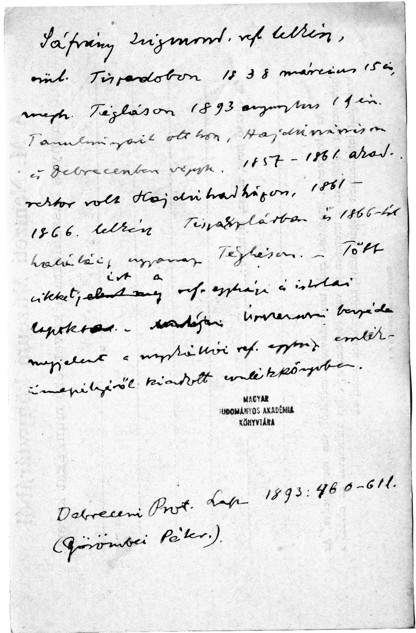 Sáfrány Zsigmond, ref. lelkész,
szül. Tiszadobon 1838 március 15én,
megh. Tégláson 1893 augusztus 19én.
Tanulmányait otthon, Hajdu
és Debrecenben végezte. 1857–1861 akad.
rektor volt Hajdúhadházon, 1861–
1866. lelkész és 1866-tól
haláláig ugyanaz Tégláson. – Több
írt a
cikket, ref. egyházi és iskolai
lapokba. – beszéde
megjelent a ref. egyház emlék-
ünnepélyéről kiadott emlékkönyvben.
MAGYAR
TUDOMÁNYOS AKADÉMIA
KÖNYVTÁRA
Debreceni Prot. Lap 1893: 460–61 l.
(Görömbei Péter.)